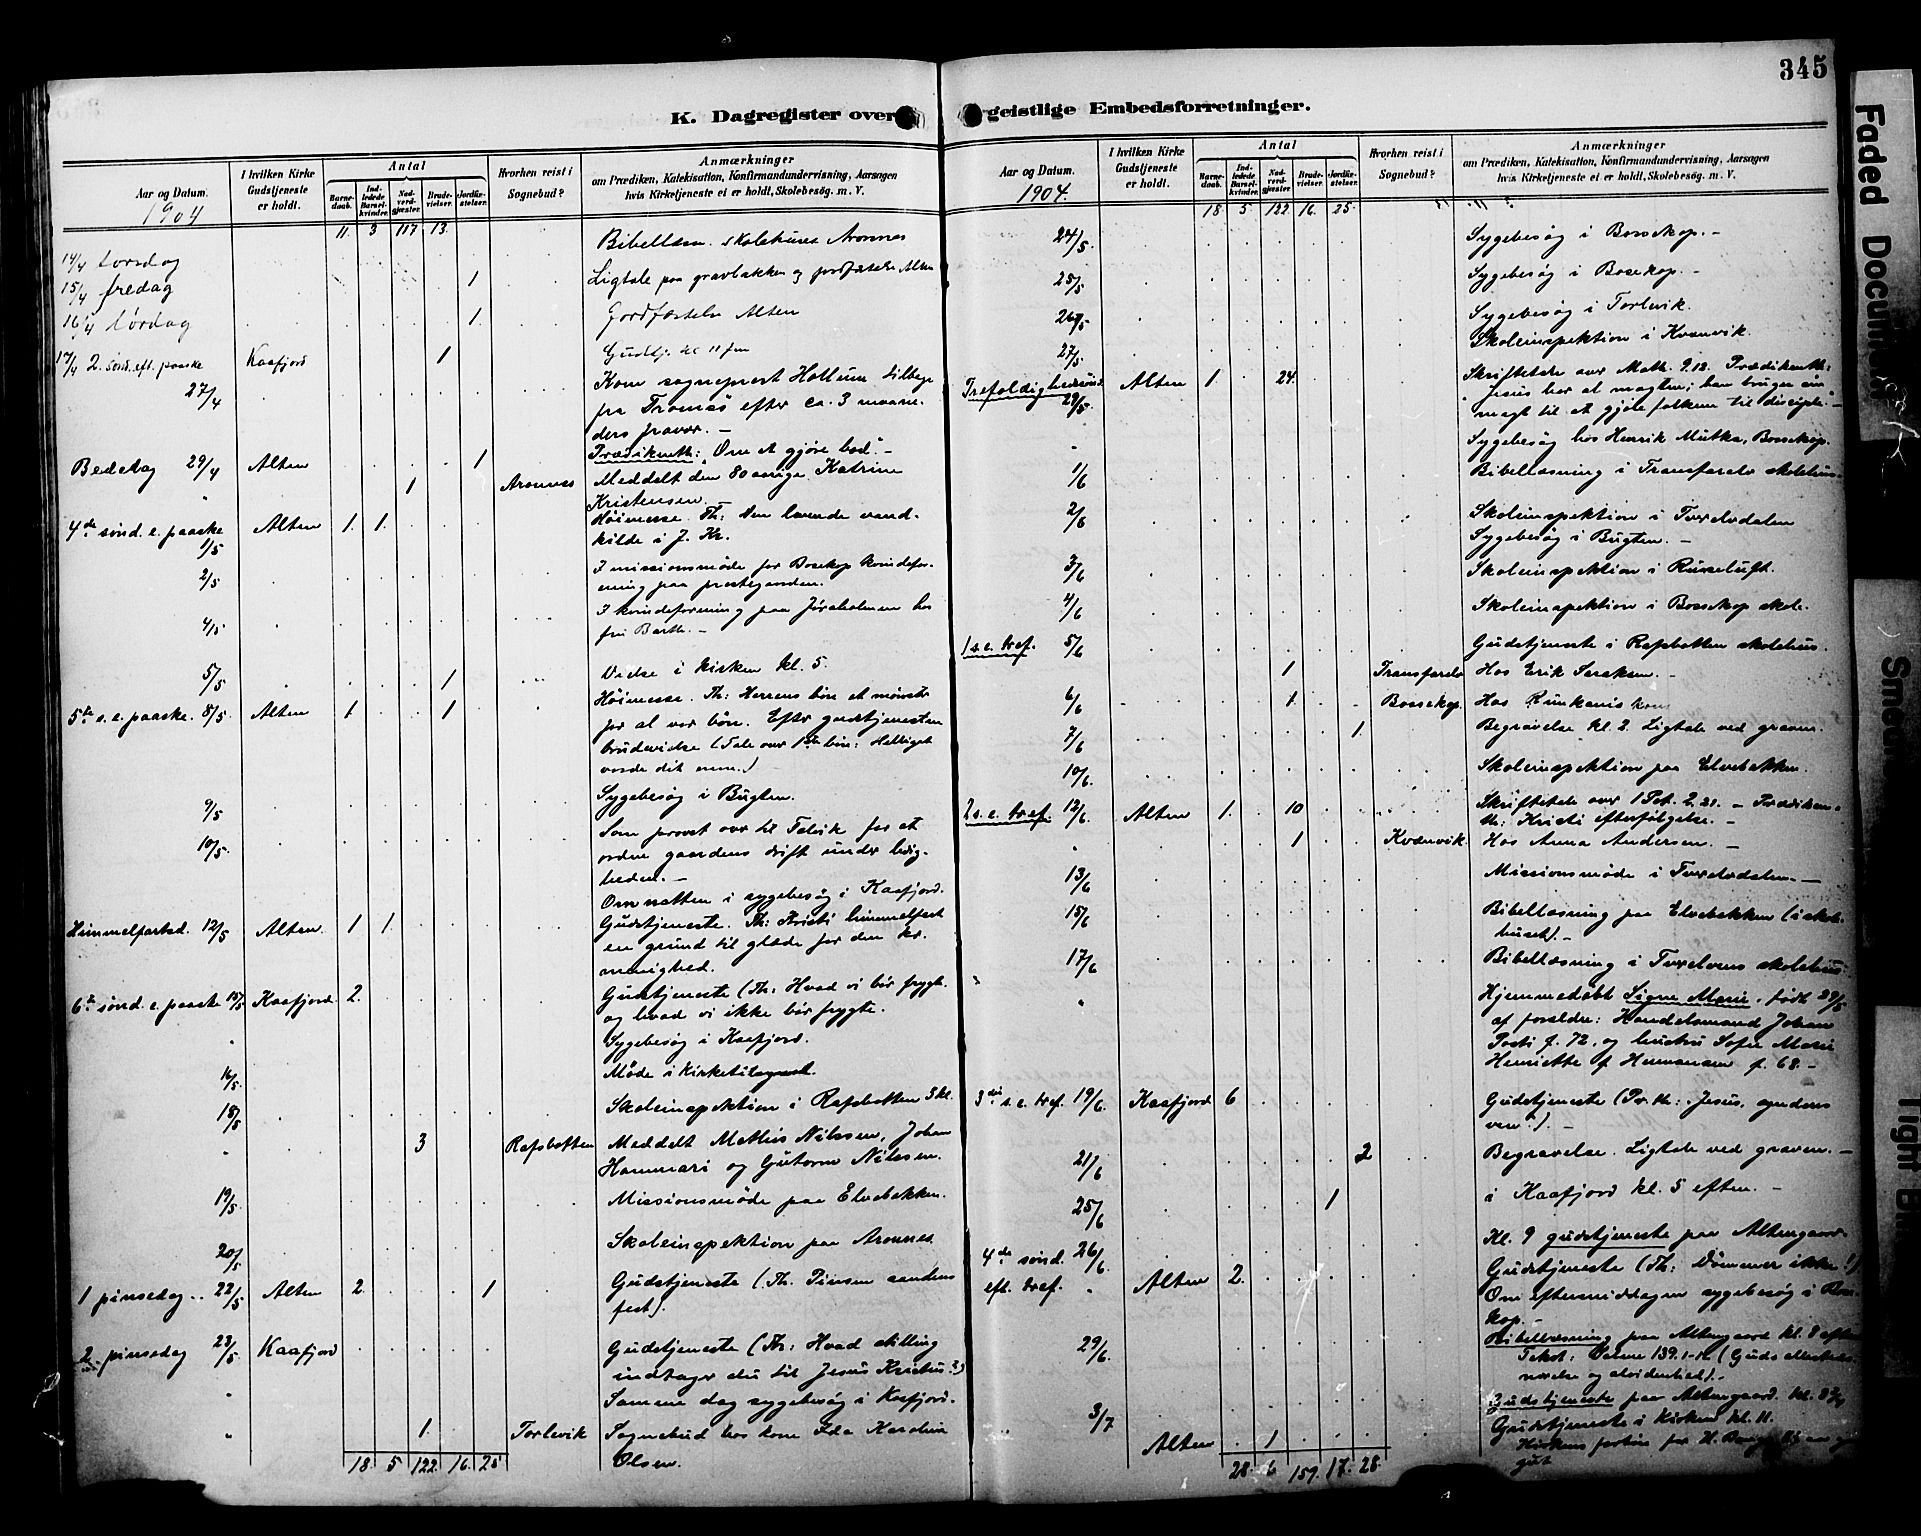 345
K. Dagregister over geistlige Embedsforretninger.
Aar og Datum. 1904
I hvilken Kirke Gudstjeneste er holdt.
Antal
Barnedaab.
Indledede Barselkvinder.
Nadverdgjæster.
Brudevielser.
Jordfæstelser.
Hvorhen reist i Sognebud?
Anmærkninger
om Prædiken, Katekisation, Konfirmandundervisning, Aarsagen
hvis Kirketjeneste et er holdt, Skolebesøg. m. V.
11 3 117 13
14/4 torsdag Bibellæsn. skolehuset Aronnes
15/4 fredag 1 Ligtale paa gravbakken og jordfæstelse Alten
16/4 lørdag 1 Jordfæstelse Alten
17/4 2. sønd. eft. paaske Kaafjord 1 Gudstj. kl 11 fm
27/4 Kom sogneprest Hollum tilbage
fra Tromsø efter ca. 3 maane-
ders fravær. —
Bededag 29/4 Alten 1 Prædikenth: "Om at gjøre bod". —
" 1 Aronnes Meddelt den 80 aarige Katrine
Kristensen —
4de sønd. e. paaske 1/5 Alten 1. 1. Høimesse. Th: Den levende vand-
kilde i J. Kr.
2/5 I missionsmøde for Bosekop kvindefor-
ening paa prestegaarden.
4/5 I kvindeforening paa Jøraholmen hos
fru Barth. —
5/5 1 Vielse i kirken kl. 5.
5te s. e. paaske. 8/5 Alten 1 1 Høimesse. Th: Herrens bøn et mønster
for al vor bøn. Efter gudstjenesten
brudevielse (Tale over 1ste bøn: Helliget
vorde dit navn.)
9/5 Sygebesøg i Bugten.
10/5. Som provst over til Talvik for at
ordne gaardens drift under ledig-
heden. —
Om natten i sygebesøg i Kaafjord.
Himmelfartsd. 12/5 Alten. 1 1. Gudstjeneste. Th: Kristi himmelfart
en grund til glæde for den kr.
menighed.
6te sønd. e. paaske 15/5 Kaafjord. 2. Gudstjeneste (Th: Hvad vi bør frygte
og hvad vi ikke bør frygte.
" Sygebesøg i Kaafjord.
16/5 Møde i Kirketilsynet.
18/5 Skoleinspektion i Rafsbotten 3 kl.
" 3 Rafsbotten Meddelt Mathis Nilssen, Johan
Hammari og Gutorm Nilssen.
19/5 Missionsmøde paa Elvebakken.
20/5 Skoleinspektion paa Aronnes
1 pinsedag 22/5 Alten 2. 1 Gudstjeneste (Th. Pinsen aandens
fest).
2 pinsedag 23/5 Kaafjord Gudstjeneste (Th: Hvad stilling
indtager du til Jesus Kristus?)
" Samme dag sygebesøg i Kaafjord.
" 1. Torlevik Sognebud hos kone Ida Karoline
Olsen.
18. 5 122. 16. 25
Aar og Datum. 1904.
I hvilken Kirke Gudstjeneste er holdt.
Antal
Barnedaab.
Indledede Barselkvinder.
Nadverdgjæster.
Brudevielser.
Jordfæstelser.
Hvorhen reist i Sognebud?
Anmærkninger
om Prædiken, Katekisation, Konfirmandundervisning, Aarsagen
hvis Kirketjeneste et er holdt, Skolebesøg. m. V.
18. 5. 122 16. 25.
24/5. Sygebesøg i Bossekop. —
25/5 Sygebesøg i Bosekop. —
26/5 Sygebesøg i Torlevik.
27/5 Skoleinspektion i Kvænvik.
Trefoldighedssønd. 29/5. Alten 1. 24. Skriftetale over Math. 9.12. Prædikenth:
"Jesus har al magten; han bruger sin
magt til at gjøre folkene til disciple." —
Sygebesøg hos Henrik Mutka, Bossekop.
1/6 Bibellæsning i Transfarelv skolehus. —
2/6 Skoleinspektion i Tverelvdalen
Sygebesøg i Bugten. —
3/6 Skoleinspektion i Russeluft.
4/6 Skoleinspektion i Bossekop skole.
1 s. e. tref. 5/6 Gudstjeneste i Rafsbotten skolehus.
1 Transfarelv Hos Erik Isaksen. —
6/6 1. Bossekop. Hos Runkanis kone
7/6 1 Begravelse kl. 2. Ligtale ved graven.
10/6. Skoleinspektion paa Elvebakken.
2 s. e. tref. 12/6. Alten 1. 10 Skriftetale over 1 Pet. 2.21. — Prædiken-
th: Kristi efterfølgelse. —
" 1 Kvænvik. Hos Anna Andersen. —
13/6 Missionsmøde i Tverelvdalen. —
15/6 Bibellæsning paa Elvebakken (i skole-
huset). —
17/6 Bibellæsning i Tverelvens skolehus.
" Hjemmedøbt Signe Marie, født 29/5
af forældre: Handelsmand Johan
Posti f. 72, og hustru Sofie Marie
Henriette f. Hermansen f. 68. —
3die s. e. tref. 19/6. Kaafjord 6 Gudstjeneste (Pr. th: Jesus, synderes
ven.). —
21/6 2 Begravelse. Ligtale ved graven. —
25/6 1 i Kaafjord kl. 5 eften. —
4de sønd. 26/6. Kl. 9 gudstjeneste paa Altengaard.
eft. tref. " Alten 2. Gudstjeneste (Th: Dømmer ikke!)
Om eftermiddagen sygebesøg i Bosse-
kop. —
29/6. Bibellæsning paa Altengaard kl. 8 eften
Tekst: Salme 139.1-12 (Guds allesteds-
nærelse og alvidenhed). —
3/7 Gudstjeneste paa Altengaard. kl. 8
Alten 1 Gudstjeneste i Kirken kl. 11.
gut
28. 6 159. 17. 28.
Faded Document
Tight